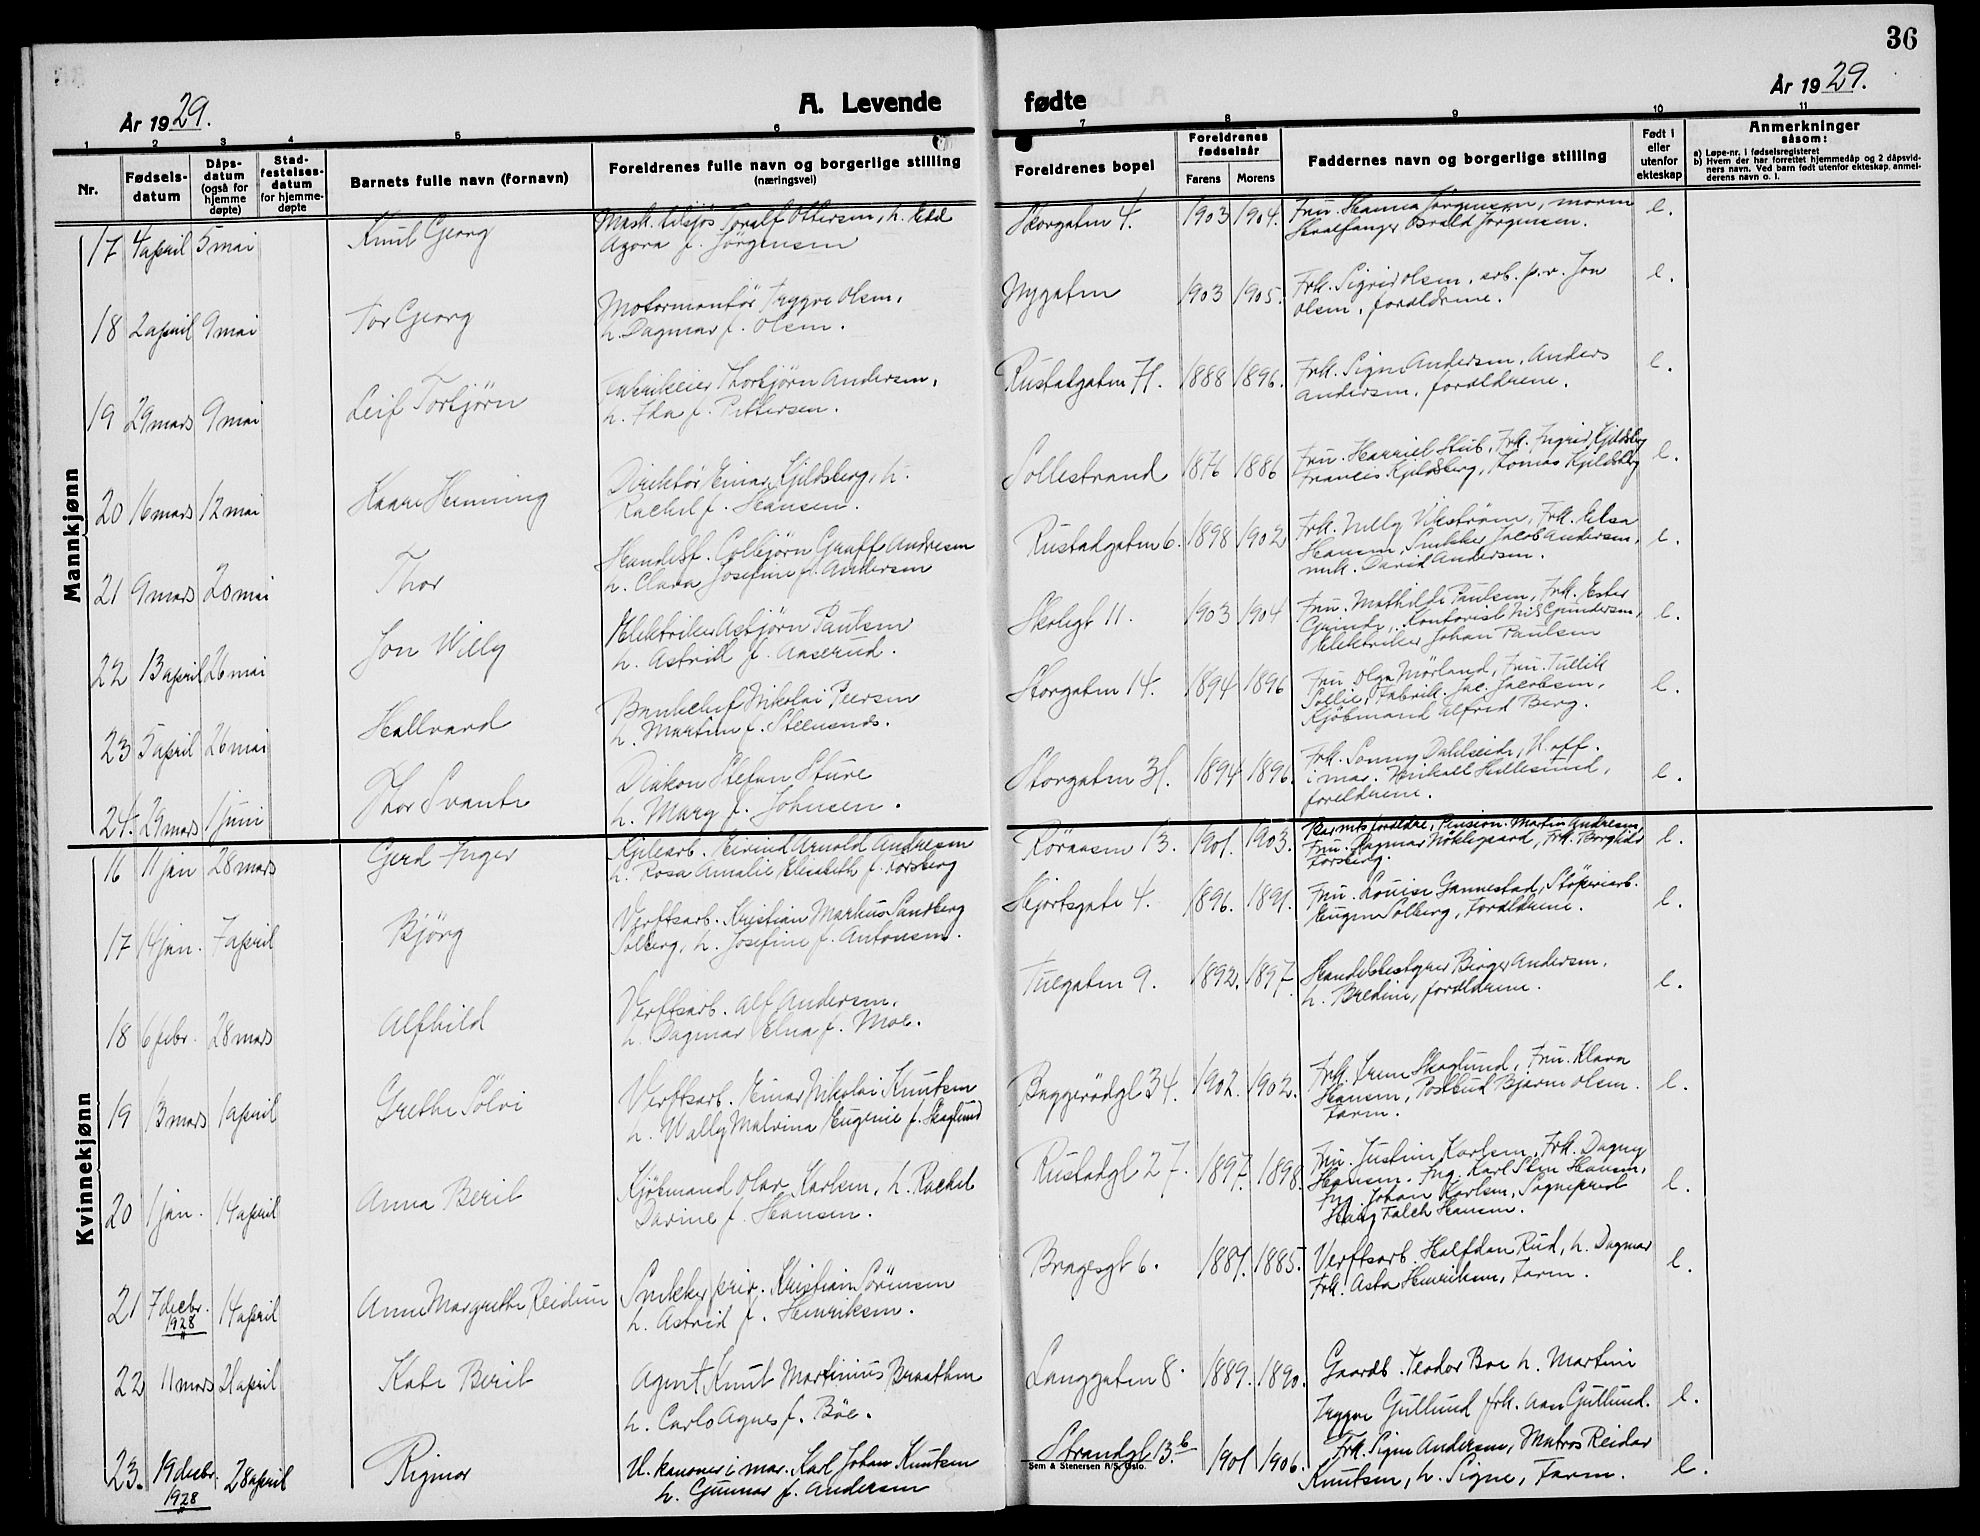 36
År 1929.
A. Levende
fødte
År 1929.
1 2 3 4 5 6 7 8 9 10 11
Nr.
Fødsels-
datum
Dåps-
datum
(også for
hjemme
døpte)
Stad-
festelses-
datum
for hjemme-
døpte
Barnets fulle navn (fornavn)
Foreldrenes fulle navn og borgerlige stilling
(næringsvei)
Foreldrenes bopel
Foreldrenes
fødselsår
Farens Morens
Faddernes navn og borgerlige stilling
Født i
eller
utenfor
ekteskap
Anmerkninger
såsom:
a) Løpe-nr. i fødselsregisteret
b) Hvem der har forrettet hjemmedåp og 2 dåpsvid-
ners navn. Ved barn født utenfor ekteskap, anmel-
derens navn o. l.
Mannkjønn
17 4 april 5 mai Knut Georg
Toralf Ottersen, h.
Agora f. Jörgensen
Storgaten 4. 1903 1904.
Fru Hanna Jörgensen,
Jörgensen.
e.
18 2 april 9 mai Tor Georg
Motormontör Trygve Olsen,
h. Dagmar f. Olsen.
Nygaten 1903 1905.
Frk. Sigrid Olsen, arb. p.v. Jon
Olsen, foreldrene.
e.
19 29 mars 9 mai Leif Torbjörn
Fabrikeier Thorbjörn Andersen,
h. Ida f. Pettersen.
Rustadgaten 71. 1888 1896.
Frk. Signe Andersen, Anders
Andersen, foreldrene.
e.
20 16 mars 12 mai Kaare Henning
Direktör Einar Kjeldsberg, h.
Rachel f. Hansen.
Sollistrand 1876 1886
Fru Harriet Stub, Frk. Ingrid Kjeldsberg
Francis Kjeldsberg, Tomas Kjeldsberg
e.
21 9 mars 20 mai Thor
Handelsf. Colbjörn Graff Andresen
h. Clara Josefine f. Andersen
Rustadgaten 6. 1898 1902
Frk. Nelly Vikström, Frk. Elsa
Hansen, Snekker Jacob Andersen,
David Andersen.
e.
22 13 april 26 mai Jon Willy
Elektriker Asbjörn Paulsen
h. Astrid f. Aaserud.
Skolegt 11. 1903 1904
Fru Mathilde Paulsen, Frk. Ester
Kontorist Nils Gundersen,
Elektriker Johan Paulsen
e.
23 5 april 26 mai Hallvard
Bankchef Nikolai Peersen
h. Martine f. Steensnæs.
Storgaten 14. 1894 1896
Fru Olga Mörland, Fru
Sollie, Fabrik. Jac. Jacobsen,
Kjöbmand Alfred Berg.
e.
24. 29 mars 1 juni Thor Svante
Diakon Stefan Sture
h. Mary f. Johnsen.
Storgaten 31. 1894 1896.
Frk. Sonny U. off.
i mar. Hellesund,
foreldrene.
e.
Kvinnekjønn
16 11 jan 28 mars Gerd Inger
Eivind Arnold Andresen
h. Rosa Amalie Elisabeth f. Torsberg
Röraasen 13. 1901. 1903.
Barnets foreldre, Pension. Martin Andresen
Fru Dagmar Nöklegaard, Frk. Borghild
Torsberg.
e.
17 14 jan. 7 april Björg
Verftsarb. Kristian Markus Sandberg
Solberg, h. Josefine f. Antonsen.
Hjortsgate 4. 1896. 1891.
Fru Louise Gannestad, Störeriarb.
Eugen Solberg, Foreldrene.
e.
18 6 febr. 28 mars Alfhild
Verftsarb. Alf Andersen,
h. Dagmar Elna f. Moe.
Tuegaten 9. 1892. 1897.
Handelsbestyrer Birger Andersen,
h. Bredine, foreldrene.
e.
19 13 mars 1 april Grethe Sölvi
Verftsarb. Einar Nikolai Knutsen
h. Wally Malvina Eugenie f. Skaglund
Baggerödgt 34. 1902. 1902.
Frk. Irene Skaglund, Fru Klara
Hansen, Postbud Bjarne Olsen.
Farm.
e.
20 1 jan. 14 april Anna Berit
Kjöbmand Olav Karlsen, h. Rachel
Davine f. Hansen.
Rustadgt 27. 1897. 1898.
Fru Justine Karlsen, Frk. Dagny
Hansen. Ing. Karl Sten Hansen,
Ing. Johan Karlsen, Sogneprest
Falch Hansen.
e.
21 7 decbr. 1928 14 april Anne Margrethe Reidun
Snekker priv. Kristian Sörensen
h. Astrid f. Henriksen.
Bragesgt 6. 1881. 1885.
Verftsarb. Halfdan Rud, h. Dagmar
Frk. Asta Henriksen, Farm.
e.
22 11 mars 21 april Kate Berit
Agent Knut Martinius Braathen
h. Carlo Agnes f. Böe.
Langgaten 8. 1889. 1890.
Gaardb. Teodor Boe h. Martine
Trygve Gullund frk. Gullund.
e.
23. 19 decbr. 1928 28 april Rigmor
U. kanoner i mar. Karl Johan Knutsen
h. Gunnar f. Andersen
Strandgt 13 b. 1901 1906.
Frk. Signe Andersen, Matros Reidar
Knutsen, h. Signe, Farm.
e.
Sem & Stenersen A/S, Oslo.